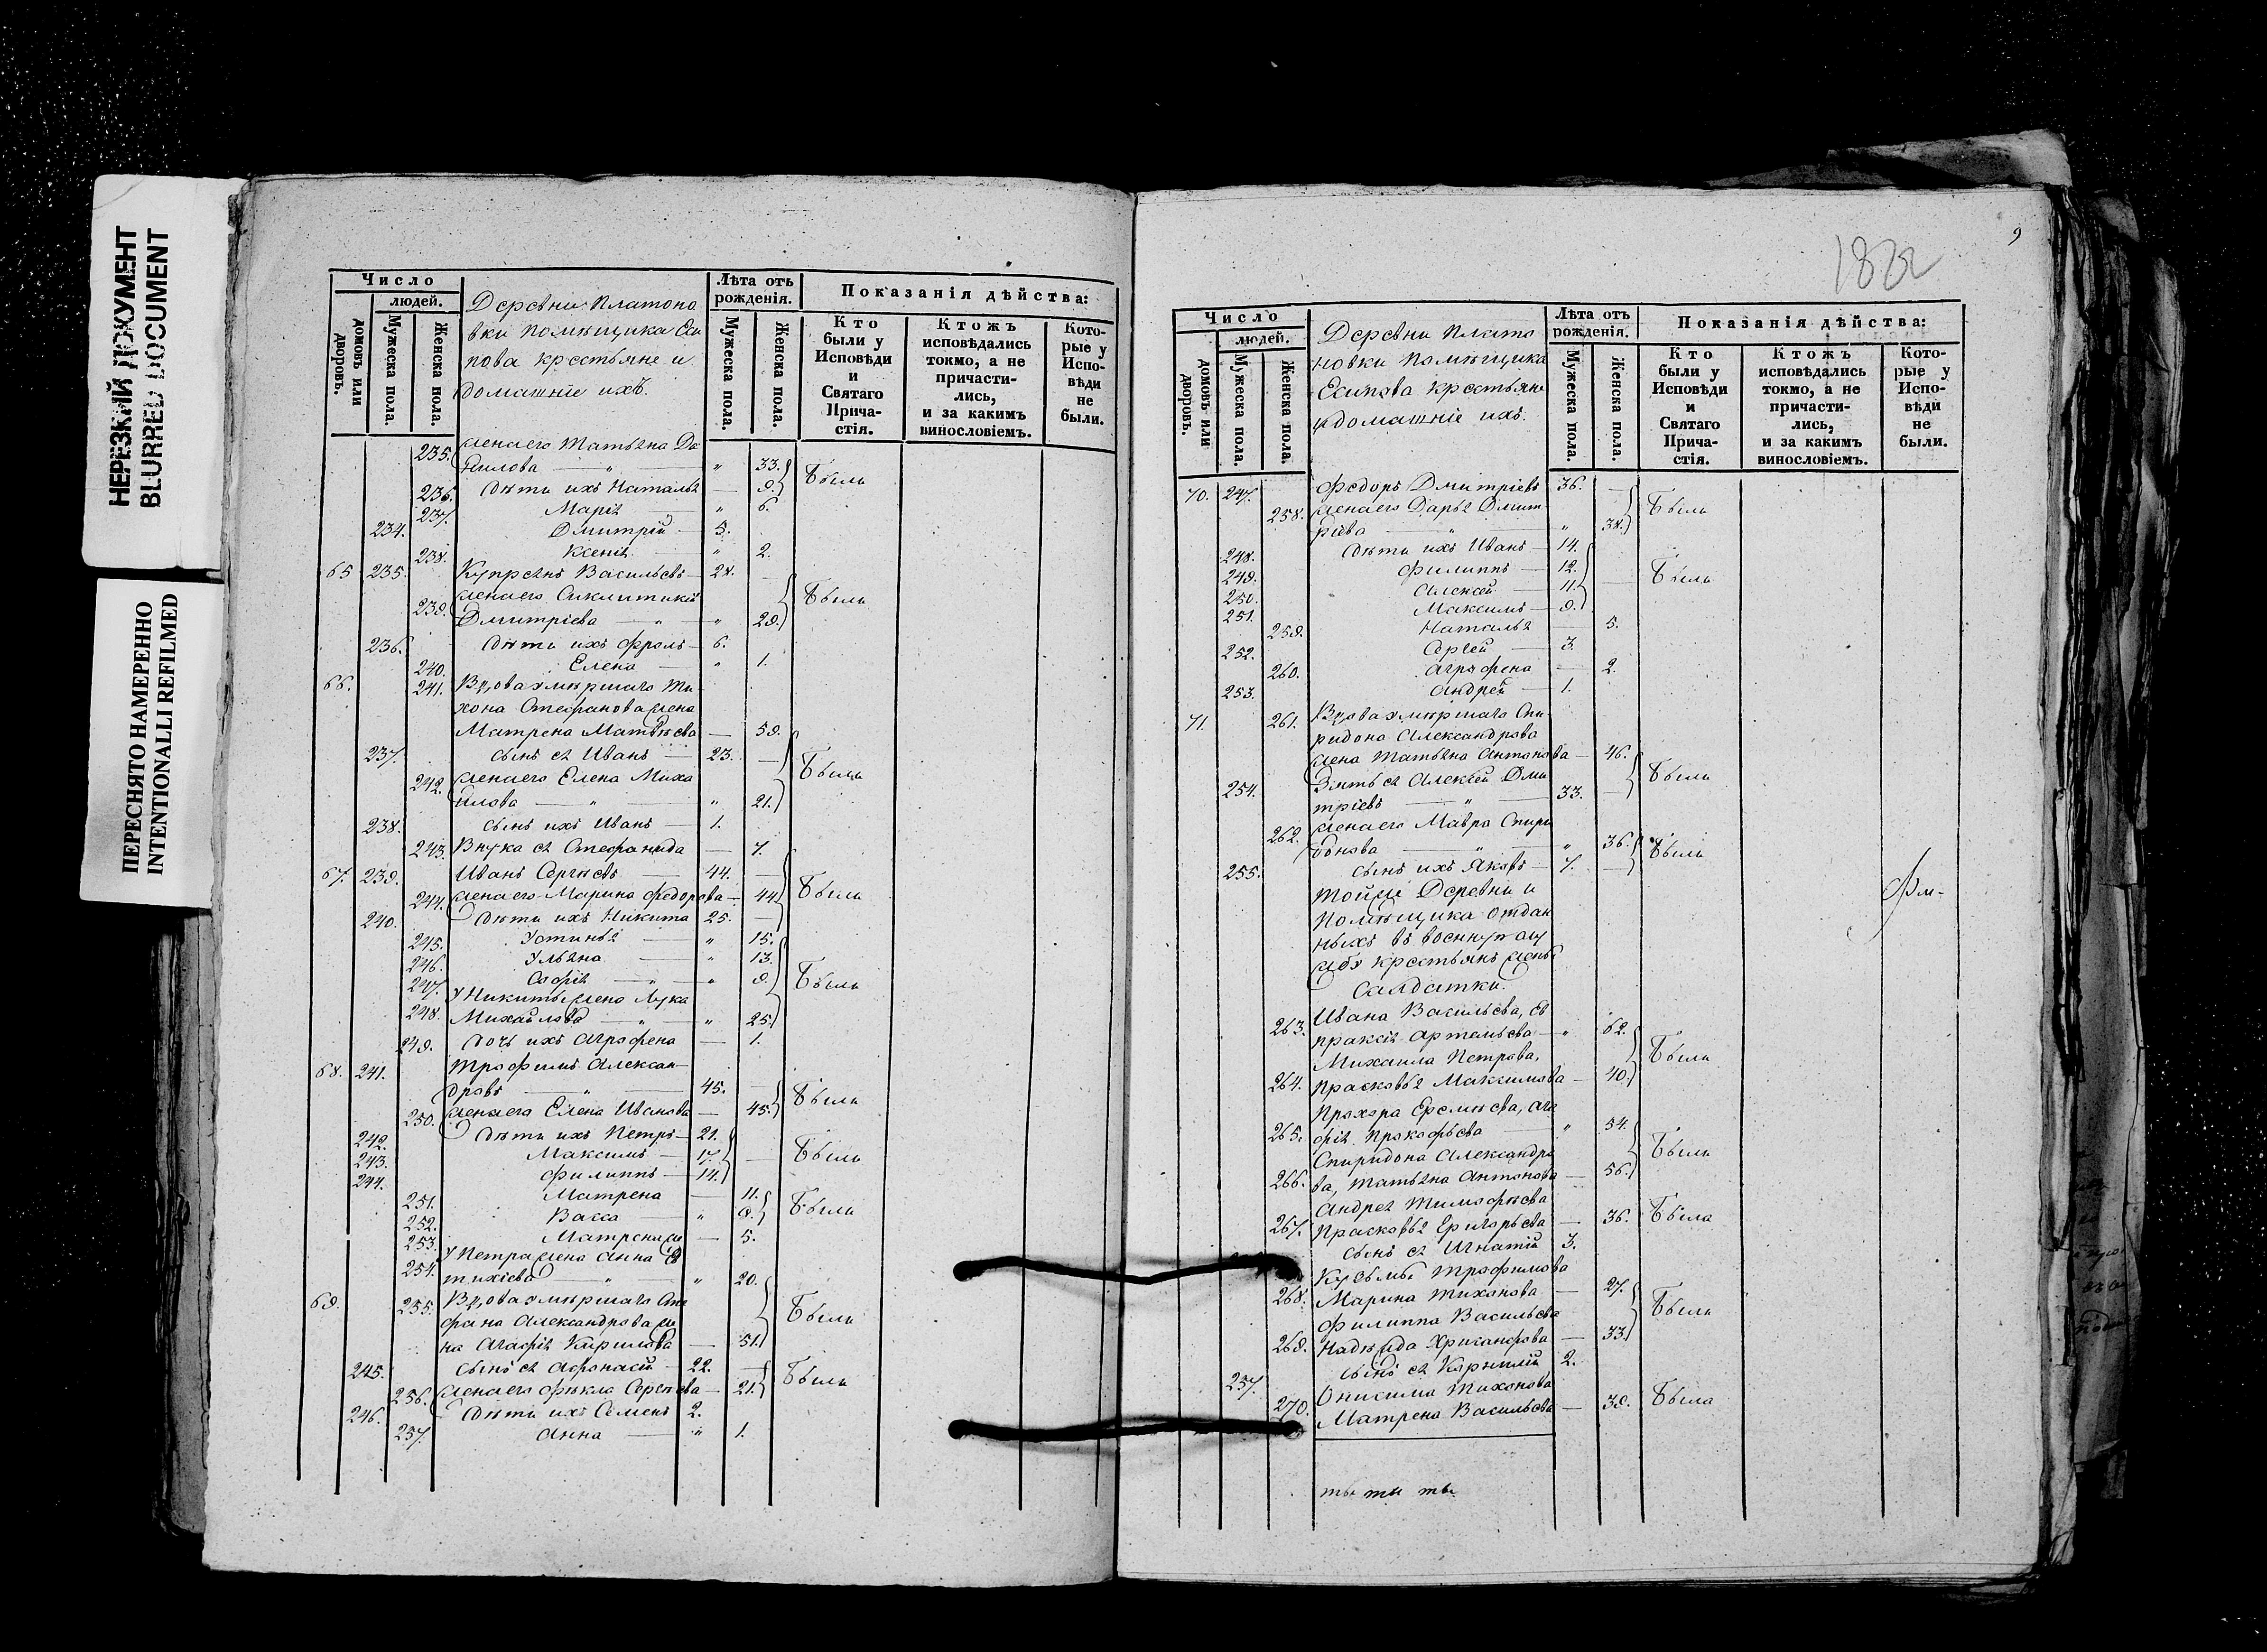 НЕРЕЗКИЙ ДОКУМЕНТ
BLURRED DOCUMENT
ПЕРЕСНЯТО НАМЕРЕННО
INTENTIONALLI REFILMED
Число
людей.
домовъ или дворовъ.
Мужеска пола.
Женска пола.
Деревни Платоно
вки помѣщика Еси
пова крестьяне и
домашніе ихъ.
Лѣта отъ рожденія.
Мужеска пола.
Женска пола.
Показанія дѣйства:
Кто были у Исповѣди и Святаго Прича-стія.
Ктожъ исповѣдались токмо, а не причасти-лись, и за какимъ винословіемъ.
Кото-рые у Испо-вѣди не были.
235. жена его Татьяна Да
нилова — " 33. Были
236. Дѣти ихъ Наталья — 9.
237. Марія " 6.
234. Дмитрій 5.
238. Ксенія " 2.
65 235. Купреянъ Васильевъ 28. —
жена его Сиклитикія
239. Дмитріева " 29. Были
236. Дѣти ихъ Фролъ 6.
240. Елена " 1.
66. 241. Вдова умершаго Ти
хона Стефанова жена
Матрена Матвѣева — 59.
237. сынъ ея Иванъ 23. —
242. жена его Елена Миха Были
илова " 21.
238. сынъ ихъ Иванъ 1.
243. Внука ея Стефанида — 7.
67. 239. Иванъ Сергѣевъ 44. —
244. жена его Марина Федорова — 44. Были
240. Дѣти ихъ Никита 25. —
245. Устинья " 15.
246. Ульяна " 13.
247. Софія " 9. Были
У Никиты жена Лука
248. Михайлова " 25.
249. Дочь ихъ Агрофена — 1.
68. 241. Трофимъ Алексан
дровъ 45. — Были
250. жена его Елена Иванова — 45.
242. Дѣти ихъ Петръ 21.
243. Максимъ 17. — Были
244. Филиппъ 14.
251. Матрена — 11.
252. Васса " 9. Были
253. Матрена же — 5.
У Петра жена Анна Ев
254. тихіева " 20.
69. 255. Вдова умершаго Сте
фана Александрова же Были
на Агафія Кирилова — 51.
245. сынъ ея Афонасій 22. —
256. жена его Фекла Сергѣева — 21. Были
246. Дѣти ихъ Семенъ 2.
257. Анна " 1.
9
1822
Число
людей.
домовъ или дворовъ.
Мужеска пола.
Женска пола.
Деревни Плато
новки помѣщика
Есипова крестьяне
и домашніе ихъ.
Лѣта отъ рожденія.
Мужеска пола.
Женска пола.
Показанія дѣйства:
Кто были у Исповѣди и Святаго Прича-стія.
Ктожъ исповѣдались токмо, а не причасти-лись, и за какимъ винословіемъ.
Кото-рые у Испо-вѣди не были.
70. 247. Федоръ Дмитріевъ 36. —
258. жена его Дарья Дмит Были
ріева " 38.
248. Дѣти ихъ Иванъ 14.
249. Филиппъ 12. Были
250. Алексей 11.
251. Максимъ 9.
259. Наталья 5.
252. Сергей 3.
260. Агрофена — 2.
253. Андрей 1.
71. 261. Вдова умершаго Спи
ридона Александрова
жена Татьяна Антонова — 46.
254. Зять ея Алексей Дми Были
тріевъ 33. —
262. жена его Мавра Спири
донова " 36. Были
255. сынъ ихъ Яковъ 7. —
Тойже Деревни и
Помѣщика отдан
ныхъ въ военную слу
жбу крестьянъ жены
Салдатки.
Ивана Васильева, Ев
263. праксія Артемьева " 62.
Михаила Петрова, Были
264. Прасковья Максимова — 40.
Прохора Еремѣева, Ага
265. фія Прокофьева " 54.
Спиридона Александро Были
266. ва, Татьяна Антонова — 56.
Андрея Тимофѣева
267. Прасковья Григорьева — 36. Была
сынъ ея Игнатій 3.
Кузьмы Трофимова
268. Марина Тихонова — 27.
Филиппа Васильева Были
269. Надежда Хрисанфова — 33.
257. сынъ ея Корнилій 2.
Онисима Тихонова
270. Матрена Васильева — 39. Была
ты ты ты